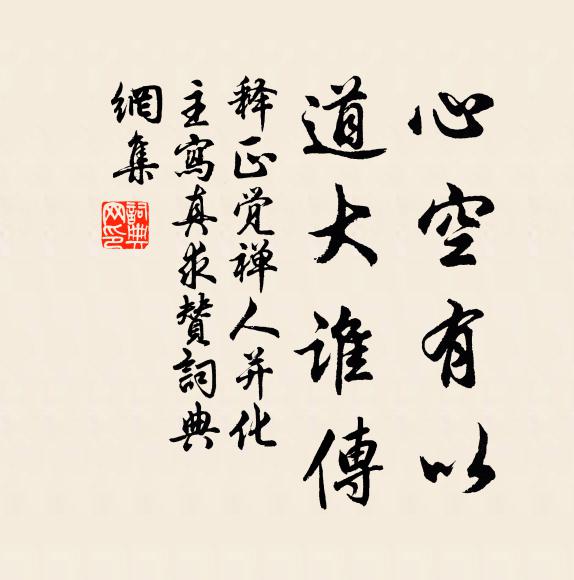 心空有以
道大誰傳
释正觉禅人并化
主寫真求贊詞典
網集
詞典網印